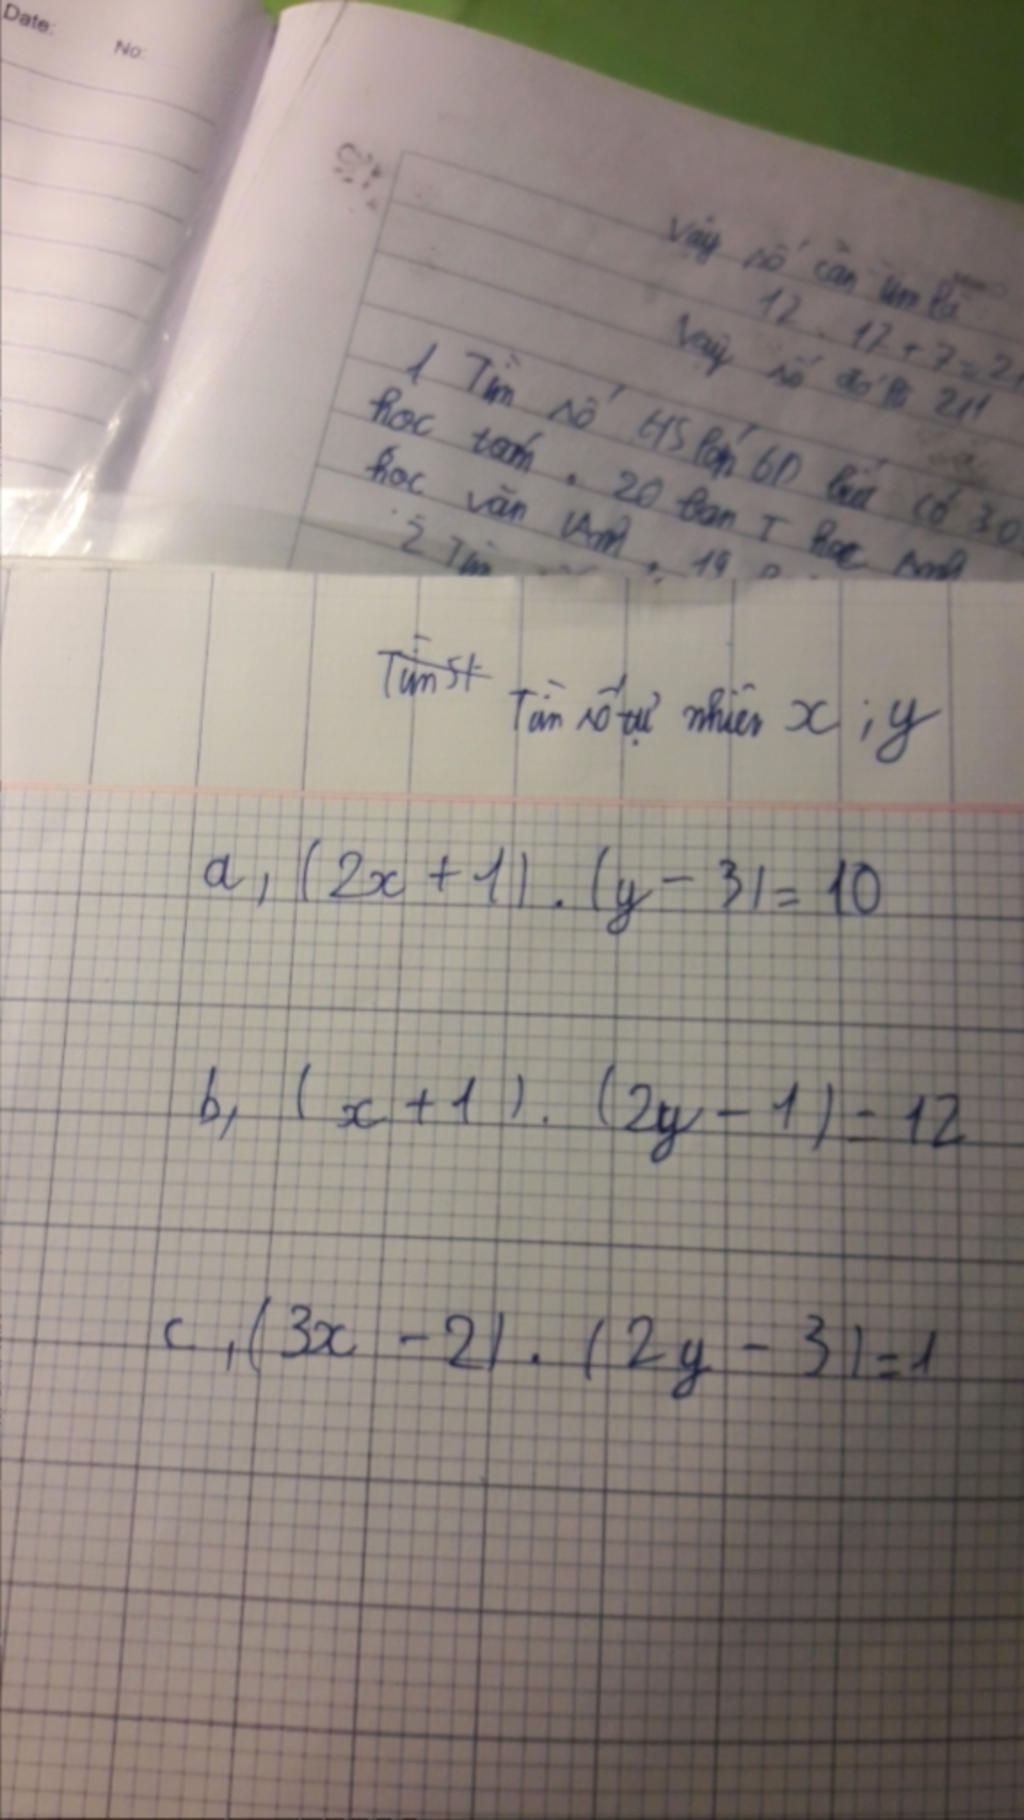 Date:
No:
Vậy số cần tìm là
12 . 17 + 7 = 21
Vậy số đó là 211
1 Tìm số HS lớp 6D biết có 30
học toán . 20 bạn T học Anh
học văn Anh . 19
2 Tìm
Tìm st
Tìm số tự nhiên x ; y
a, (2x + 1) . (y - 3) = 10
b, (x + 1) . (2y - 1) = 12
c, (3x - 2) . (2y - 3) = 1